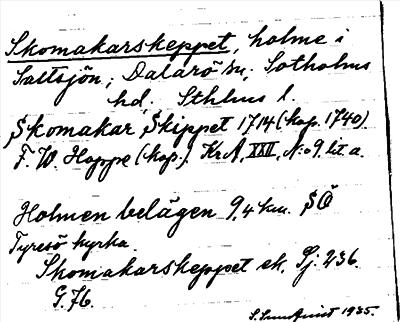 Skomakarskeppet, holme i
Saltsjön, Dalarö sn, Sotholms
hd. Sthlms l.
Skomakar Skippet 1714 (kop. 1740)
F. W. Hoppe (kop.) Kr A, XXII, No 9 lit a.
Holmen belägen 9,4 km. SÖ
Tyresö kyrka.
Skomakarskeppet ek. Sj. 236.
G. 76.
1935.